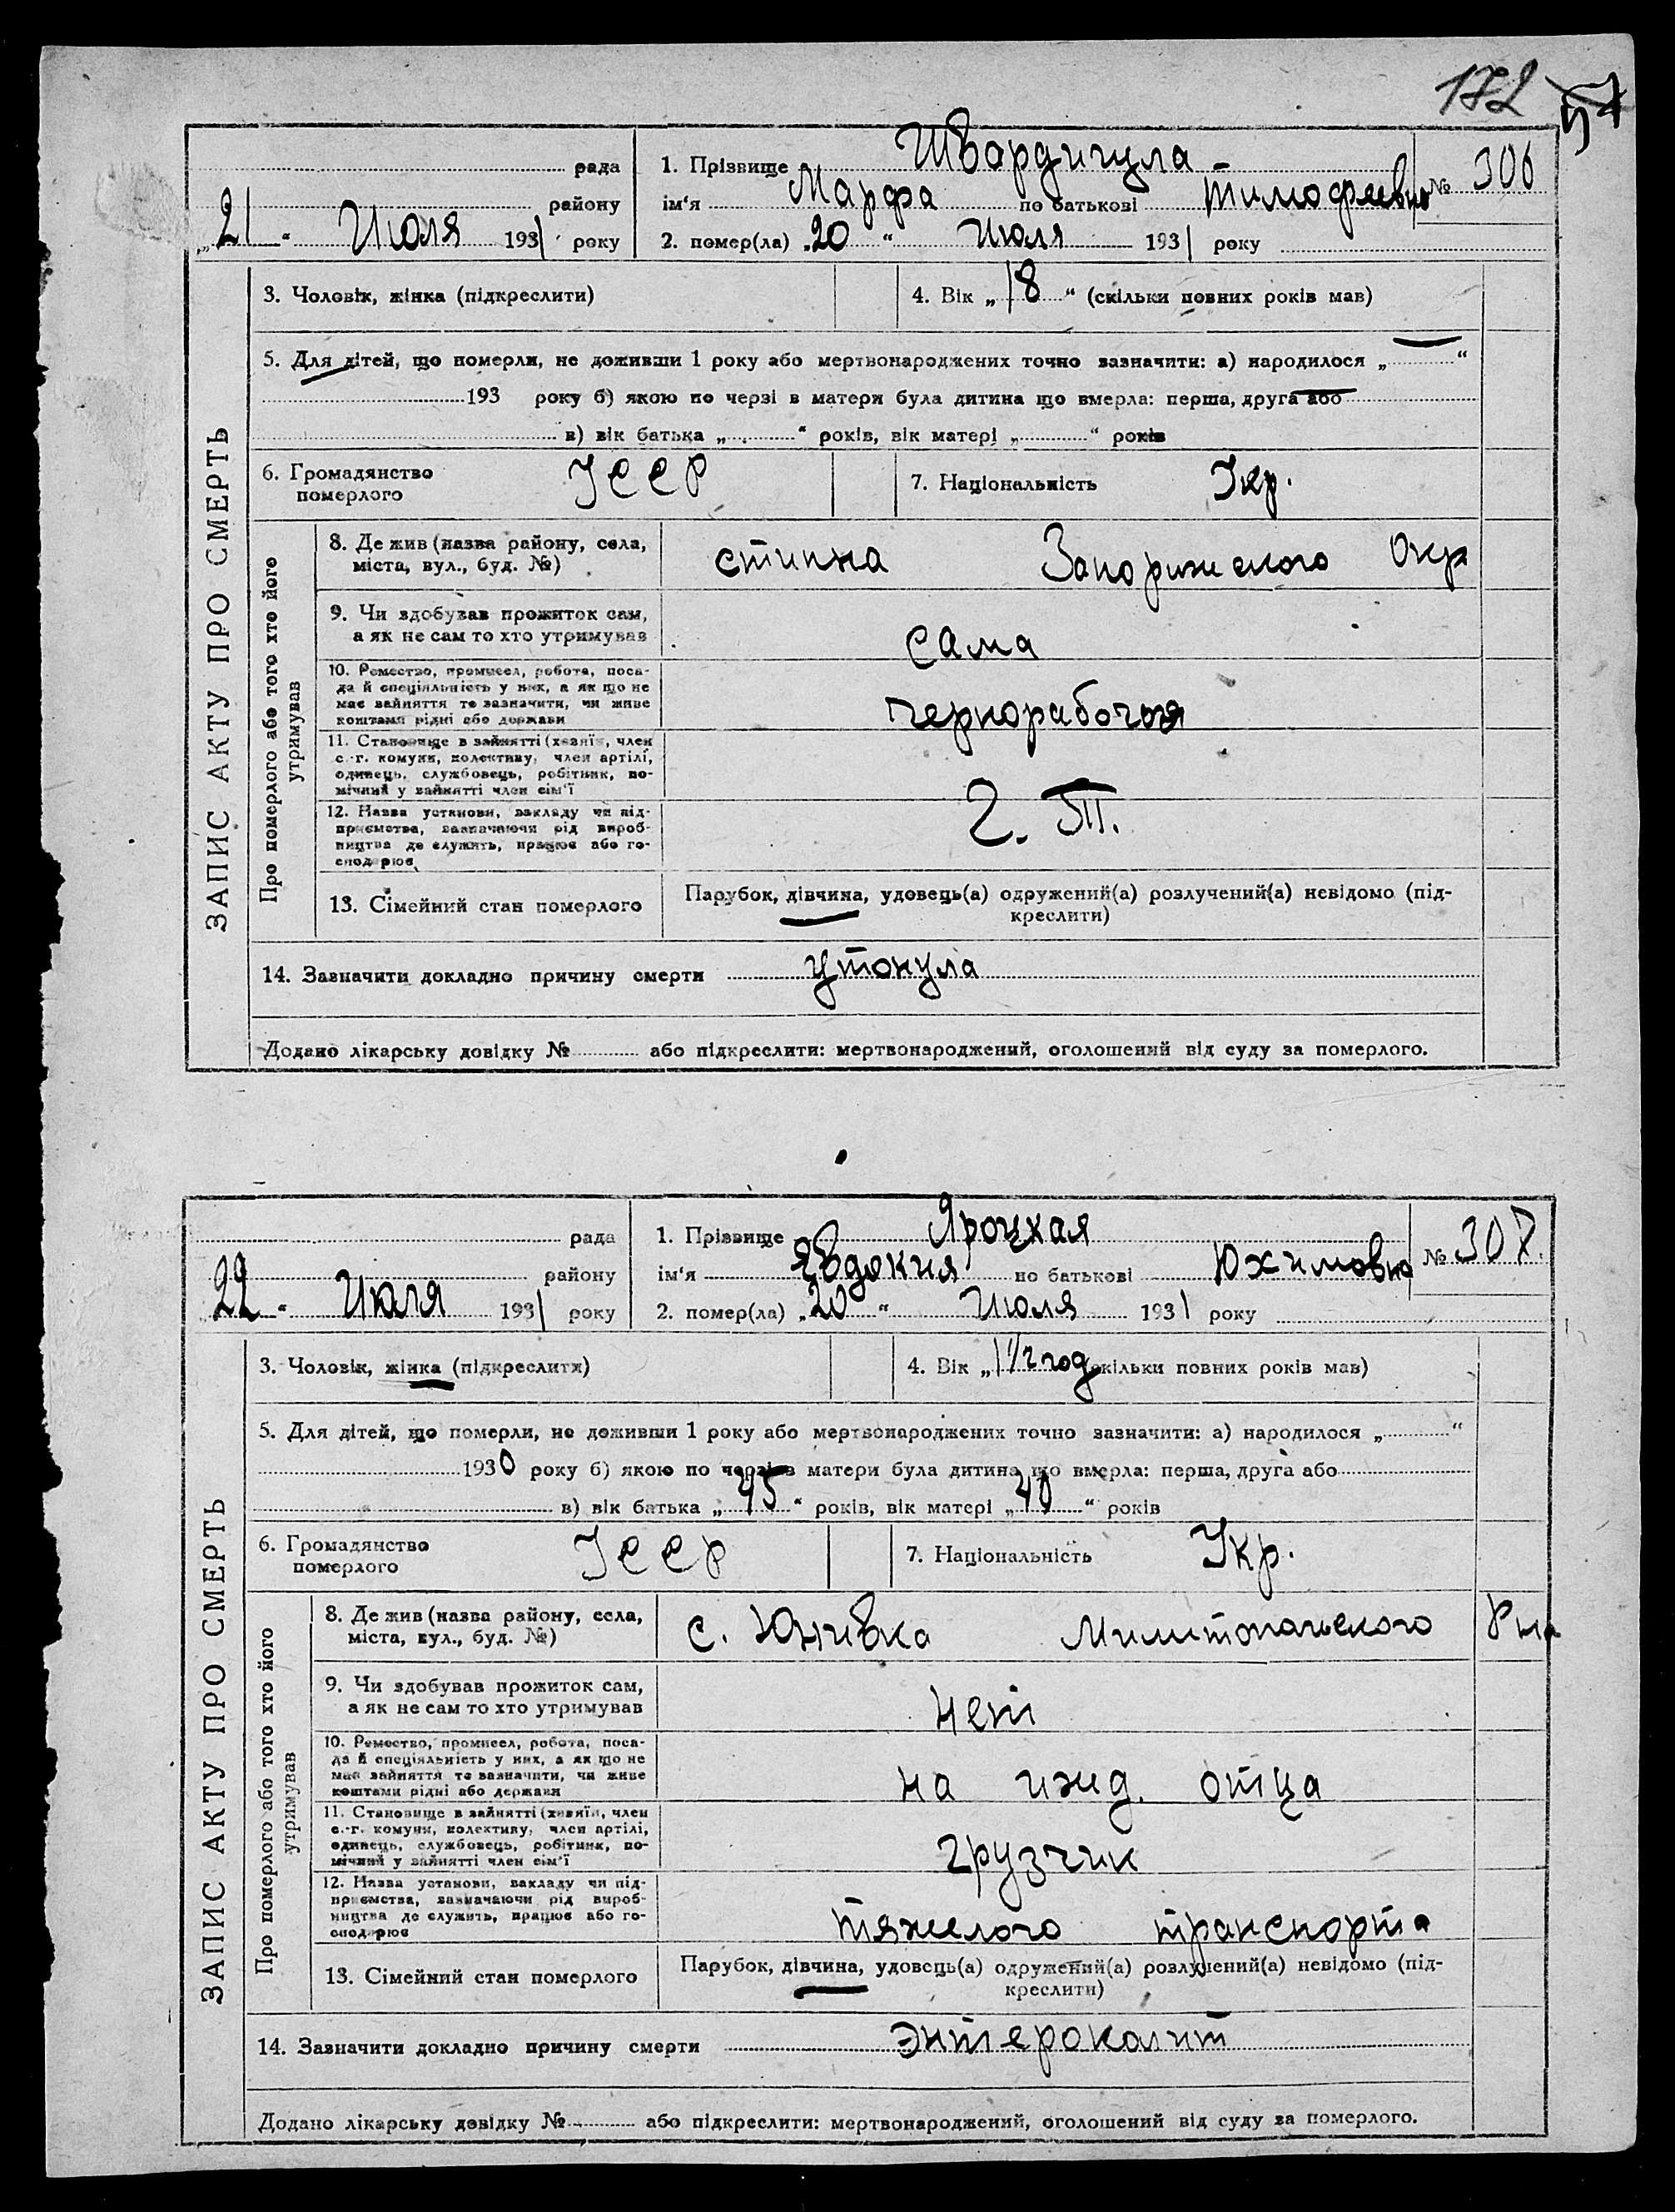 172 57
рада
району
„21" Июля 1931 року
1. Прізвище Швардигула
ім'я Марфа по батькові Тимофеевна
№ 306
2. помер(ла) „20" Июля 1931 року
ЗАПИС АКТУ ПРО СМЕРТЬ
3. Чоловік, жінка (підкреслити)
4. Вік „18" (скільки повних років мав)
5. Для дітей, що померли, не доживши 1 року або мертвонароджених точно зазначити: а) народилося „ "
193 року б) якою по черзі в матери була дитина що вмерла: перша, друга або
в) вік батька „ " років, вік матері „ " років
6. Громадянство
померлого
УССР
7. Національність Укр.
Про померлого або того хто його
утримував
8. Де жив (назва району, села,
міста, вул., буд. №)
Запорижского Окр
9. Чи здобував прожиток сам,
а як не сам то хто утримував
сама
10. Ремество, промисел, робота, поса-
да й спеціяльність у них, а як що не
має зайняття то зазначити, чи живе
коштами рідні або держави
чернорабочая
11. Становище в зайнятті (хазяїн, член
с.-г. комуни, колективу, член артілі,
одинець, службовець, робітник, по-
мічний у зайнятті член сім'ї
12. Назва установи, закладу чи під-
приємства, зазначаючи рід вироб-
ництва де служить, працює або го-
сподарює
13. Сімейний стан померлого
Парубок, дівчина, удовець(а) одружений(а) розлучений(а) невідомо (під-
креслити)
14. Зазначити докладно причину смерти утонула
Додано лікарську довідку № або підкреслити: мертвонароджений, оголошений від суду за померлого.
рада
району
22 " Июля 1931 року
1. Прізвище Яроцкая
ім'я Евдокия по батькові Юхимовна
№ 307.
2. помер(ла) „20" Июля 1931 року
ЗАПИС АКТУ ПРО СМЕРТЬ
3. Чоловік, жінка (підкреслити)
4. Вік „1 1/2 год скільки повних років мав)
5. Для дітей, що померли, не доживши 1 року або мертвонароджених точно зазначити: а) народилося „ "
1930 року б) якою по черзі в матери була дитина що вмерла: перша, друга або
в) вік батька „45" років, вік матері „40" років
6. Громадянство
померлого
УССР
7. Національність Укр.
Про померлого або того хто його
утримував
8. Де жив (назва району, села,
міста, вул., буд. №)
с. Милитопольского Р-на
9. Чи здобував прожиток сам,
а як не сам то хто утримував
нет
10. Ремество, промисел, робота, поса-
да й спеціяльність у них, а як що не
має зайняття то зазначити, чи живе
коштами рідні або держави
на ижд. отца
11. Становище в зайнятті (хазяїн, член
с.-г. комуни, колективу, член артілі,
одинець, службовець, робітник, по-
мічний у зайнятті член сім'ї
грузчик
12. Назва установи, закладу чи під-
приємства, зазначаючи рід вироб-
ництва де служить, працює або го-
сподарює
тяжелого транспорта
13. Сімейний стан померлого
Парубок, дівчина, удовець(а) одружений(а) розлучений(а) невідомо (під-
креслити)
14. Зазначити докладно причину смерти энтероколит
Додано лікарську довідку № або підкреслити: мертвонароджений, оголошений від суду за померлого.